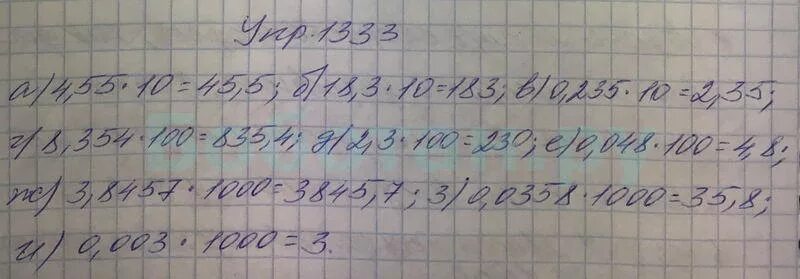 Упр. 1333
а) 4,55 · 10 = 45,5; б) 18,3 · 10 = 183; в) 0,235 · 10 = 2,35;
г) 8,354 · 100 = 835,4; д) 2,3 · 100 = 230; е) 0,048 · 100 = 4,8;
ж) 3,8457 · 1000 = 3845,7; з) 0,0358 · 1000 = 35,8;
и) 0,003 · 1000 = 3.